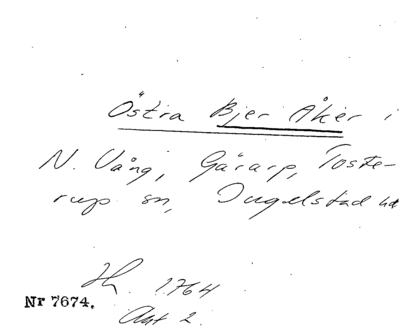 Östra Bjer Åker i
N. Vång, Gärarp, Toste-
rup sn, Ingelstad hd
H. 1764
Akt 2.
Nr 7674.